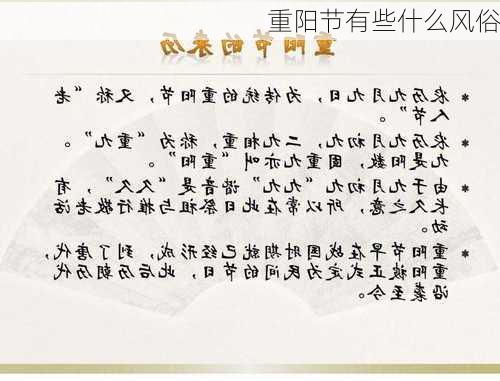 重阳节有些什么风俗
重阳节的来历
农历九月九日，为传统的重阳节，又称“老
人节”。
农历九月初九，二九相重，称为“重九”。
九是阳数，固重九亦叫“重阳”。
由于九月初九“九九”谐音是“久久”，有
长久之意，所以常在此日祭祖与推行敬老活
动。
重阳节早在战国时期就已经形成，到了唐代，
重阳被正式定为民间的节日，此后历朝历代
沿袭至今。